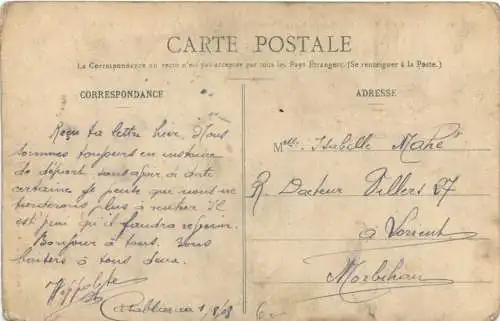 CARTE POSTALE
La Correspondance au recto n'est pas acceptée par tous les Pays Étrangers. (Se renseigner à la Poste.)
CORRESPONDANCE
Reçu ta lettre hier. Nous
sommes toujours en instance
de départ sans avoir à date
certaine je pense que nous ne
tarderons plus à rentrer. Il
est qu'il faudra
Bonjour à tous. Vous
à tous deux.
Hippolyte
1/8/08
ADRESSE
Melle Isabelle Mahé
R. Docteur Villers 27
à Lorient
Morbihan